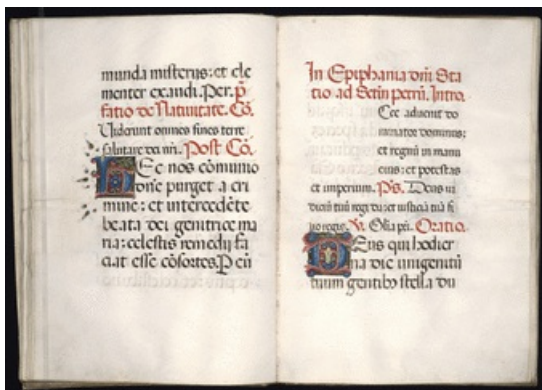 munda misterijs: et cle
menter exaudi. Per. p̄
fatio de Natiuitate. Cō.
Uiderunt omnes fines terre
salutare dei nr̄i. Post Cō.
Hec nos cōmunio
dn̄e purget a cri
mine: et intercedēte
beata dei genitrice ma
ria: celestis remedij fa
ciat esse cōsortes. P eū
In Epiphania dn̄i Sta
tio ad Sctm̄ petrū. Intro.
Cce aduenit do
minator dominus:
et regnū in manu
eius: et potestas
et imperium. Ps. Deus iu
diciū tuū regi da: et iusticiā tuā fi
lio regis. Gl̄ia pr̄i. Oratio.
Deus qui hodier
na die unigenitū
tuum gentibꝰ stella du